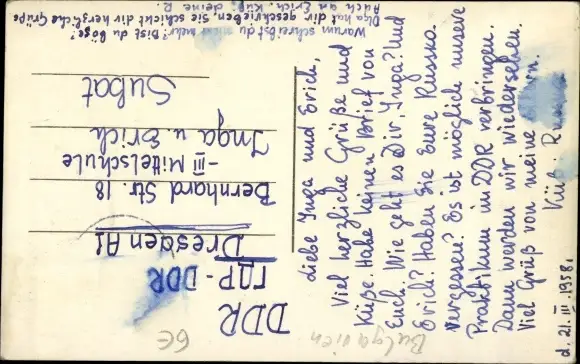 Liebe Inga und Erich,
Viel herzliche Grüße und
Küße. Habe keinen Brief von
Euch. Wie geht es Dir, Inga? Und
Erich? Haben Sie Eure Russka
vergessen? Es ist möglich unsere
Praktikum in DDR verbringen.
Dann werden wir wiedersehen.
Viel Grüß von meine
Küß.
d. 21. III. 1958.
DDR
ГДР - DDR
Dresden A1
Bernhard Str. 18
- III Mittelschule
Inga u. Erich
Subat
Warum schreibst du nicht mehr? Bist du böse?
Olga hat dir geschrieben. Sie schickt dir herzliche Grüße
Auch an Erich. Küß, deine R.
Bulgarien
6€